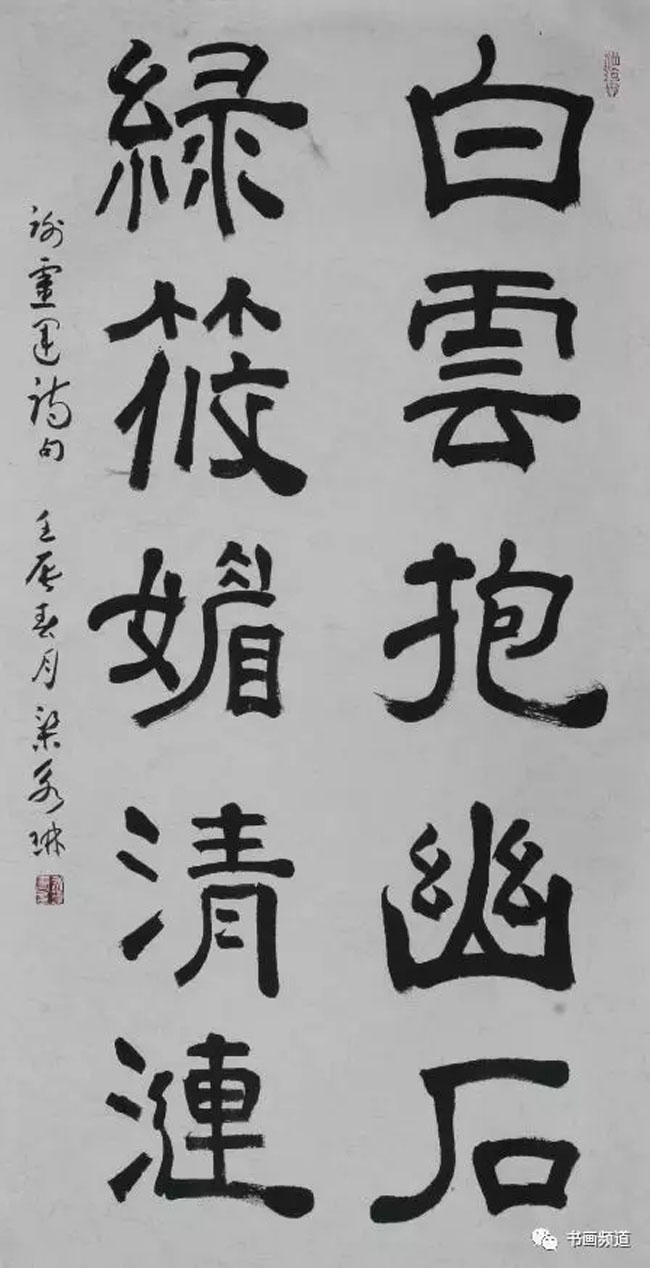 白雲抱幽石
緑筱媚清漣
謝靈運詩句 壬辰春月 梁永琳
书画频道